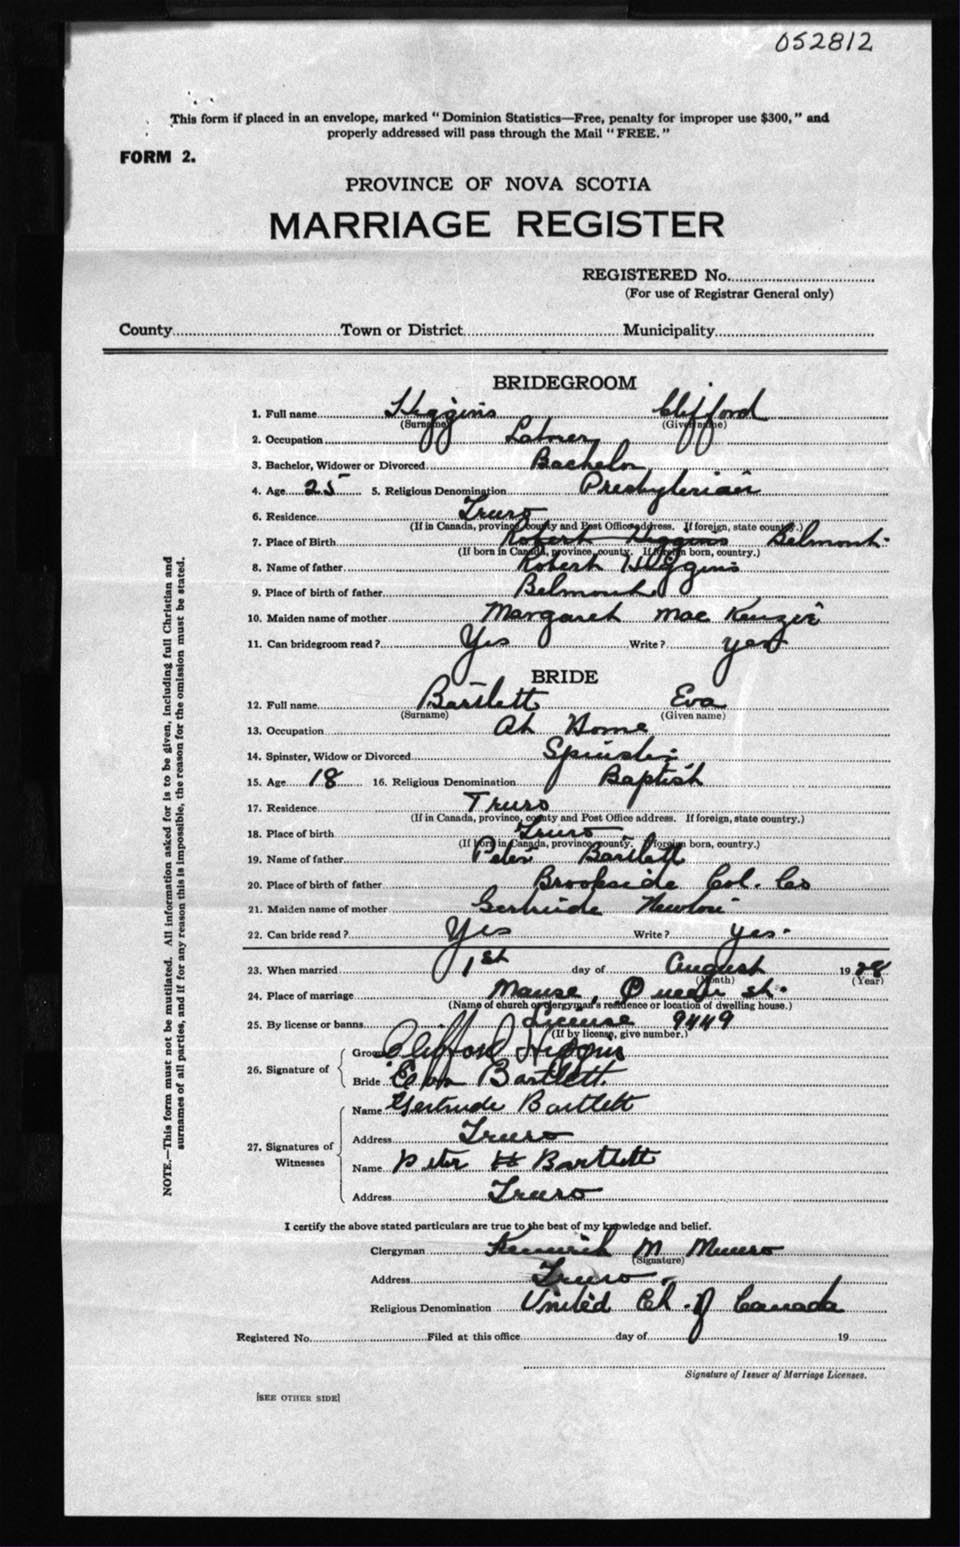 052812
This form if placed in an envelope, marked "Dominion Statistics—Free, penalty for improper use $300," and
properly addressed will pass through the Mail "FREE."
FORM 2.
PROVINCE OF NOVA SCOTIA
MARRIAGE REGISTER
REGISTERED No.
(For use of Registrar General only)
County Town or District Municipality
BRIDEGROOM
1. Full name Higgins Clifford
(Surname) (Given name)
2. Occupation Laborer
3. Bachelor, Widower or Divorced Bachelor
4. Age 25 5. Religious Denomination Presbyterian
6. Residence Truro
(If in Canada, province, county and Post Office address. If foreign, state country.)
7. Place of Birth Robert Higgins Belmont
(If born in Canada, province, county. If foreign born, country.)
8. Name of father Robert Higgins
9. Place of birth of father Belmont
10. Maiden name of mother Margaret MacKenzie
11. Can bridegroom read? Yes Write? yes
BRIDE
12. Full name Bartlett Eva
(Surname) (Given name)
13. Occupation At Home
14. Spinster, Widow or Divorced Spinster
15. Age 18 16. Religious Denomination Baptist
17. Residence Truro
(If in Canada, province, county and Post Office address. If foreign, state country.)
18. Place of birth Truro
(If born in Canada, province, county. If foreign born, country.)
19. Name of father Peter Bartlett
20. Place of birth of father Brookside Col. Co
21. Maiden name of mother Gertrude
22. Can bride read? Yes Write? yes.
23. When married 1st day of August 1928
(Month) (Year)
24. Place of marriage Manse, Queen St.
(Name of church or clergyman's residence or location of dwelling house.)
25. By license or banns License 9449
(If by license, give number.)
26. Signature of
Groom Clifford Higgins
Bride Eva Bartlett
27. Signatures of Witnesses
Name Gertrude Bartlett
Address Truro
Name Peter H Bartlett
Address Truro
I certify the above stated particulars are true to the best of my knowledge and belief.
Clergyman M Munro
(Signature)
Address Truro
Religious Denomination United Ch. of Canada
Registered No. Filed at this office day of 19
Signature of Issuer of Marriage Licenses.
[SEE OTHER SIDE]
NOTE.—This form must not be mutilated. All information asked for is to be given, including full Christian and
surnames of all parties, and if for any reason this is impossible, the reason for the omission must be stated.